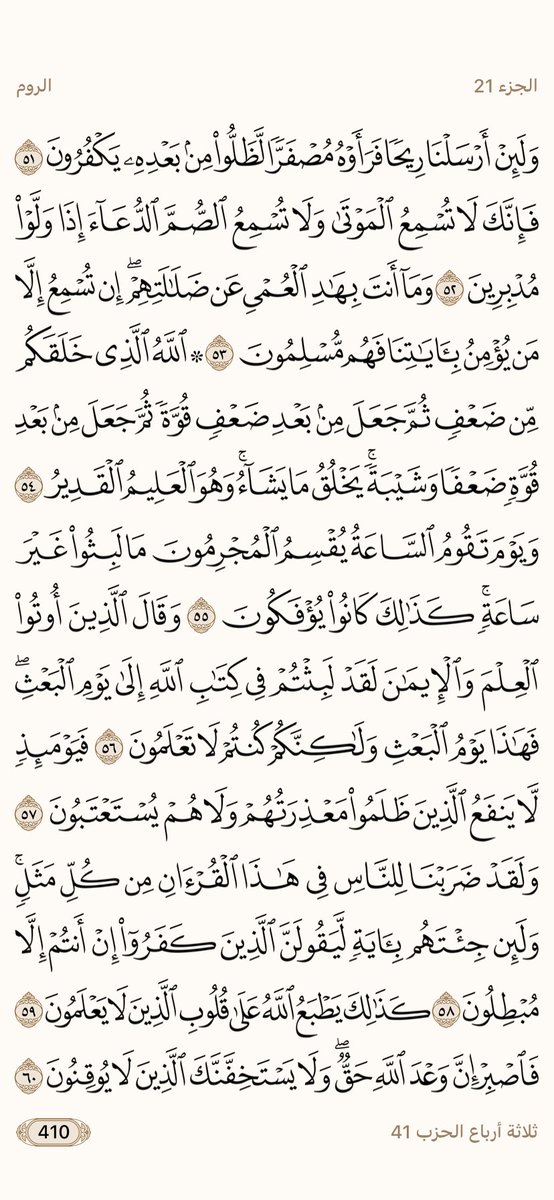 الجزء 21 الروم
وَلَئِنۡ أَرۡسَلۡنَا رِيحٗا فَرَأَوۡهُ مُصۡفَرّٗا لَّظَلُّواْ مِنۢ بَعۡدِهِۦ يَكۡفُرُونَ ٥١
فَإِنَّكَ لَا تُسۡمِعُ ٱلۡمَوۡتَىٰ وَلَا تُسۡمِعُ ٱلصُّمَّ ٱلدُّعَآءَ إِذَا وَلَّوۡاْ
مُدۡبِرِينَ ٥٢ وَمَآ أَنتَ بِهَٰدِ ٱلۡعُمۡيِ عَن ضَلَٰلَتِهِمۡۖ إِن تُسۡمِعُ إِلَّا
مَن يُؤۡمِنُ بِـَٔايَٰتِنَا فَهُم مُّسۡلِمُونَ ٥٣ ۞ ٱللَّهُ ٱلَّذِي خَلَقَكُم
مِّن ضَعۡفٖ ثُمَّ جَعَلَ مِنۢ بَعۡدِ ضَعۡفٖ قُوَّةٗ ثُمَّ جَعَلَ مِنۢ بَعۡدِ
قُوَّةٖ ضَعۡفٗا وَشَيۡبَةٗۚ يَخۡلُقُ مَا يَشَآءُۚ وَهُوَ ٱلۡعَلِيمُ ٱلۡقَدِيرُ ٥٤
وَيَوۡمَ تَقُومُ ٱلسَّاعَةُ يُقۡسِمُ ٱلۡمُجۡرِمُونَ مَا لَبِثُواْ غَيۡرَ
سَاعَةٖۚ كَذَٰلِكَ كَانُواْ يُؤۡفَكُونَ ٥٥ وَقَالَ ٱلَّذِينَ أُوتُواْ
ٱلۡعِلۡمَ وَٱلۡإِيمَٰنَ لَقَدۡ لَبِثۡتُمۡ فِي كِتَٰبِ ٱللَّهِ إِلَىٰ يَوۡمِ ٱلۡبَعۡثِۖ
فَهَٰذَا يَوۡمُ ٱلۡبَعۡثِ وَلَٰكِنَّكُمۡ كُنتُمۡ لَا تَعۡلَمُونَ ٥٦ فَيَوۡمَئِذٖ
لَّا يَنفَعُ ٱلَّذِينَ ظَلَمُواْ مَعۡذِرَتُهُمۡ وَلَا هُمۡ يُسۡتَعۡتَبُونَ ٥٧
وَلَقَدۡ ضَرَبۡنَا لِلنَّاسِ فِي هَٰذَا ٱلۡقُرۡءَانِ مِن كُلِّ مَثَلٖۚ
وَلَئِن جِئۡتَهُم بِـَٔايَةٖ لَّيَقُولَنَّ ٱلَّذِينَ كَفَرُوٓاْ إِنۡ أَنتُمۡ إِلَّا
مُبۡطِلُونَ ٥٨ كَذَٰلِكَ يَطۡبَعُ ٱللَّهُ عَلَىٰ قُلُوبِ ٱلَّذِينَ لَا يَعۡلَمُونَ ٥٩
فَٱصۡبِرۡ إِنَّ وَعۡدَ ٱللَّهِ حَقّٞۖ وَلَا يَسۡتَخِفَّنَّكَ ٱلَّذِينَ لَا يُوقِنُونَ ٦٠
ثلاثة أرباع الحزب 41 410